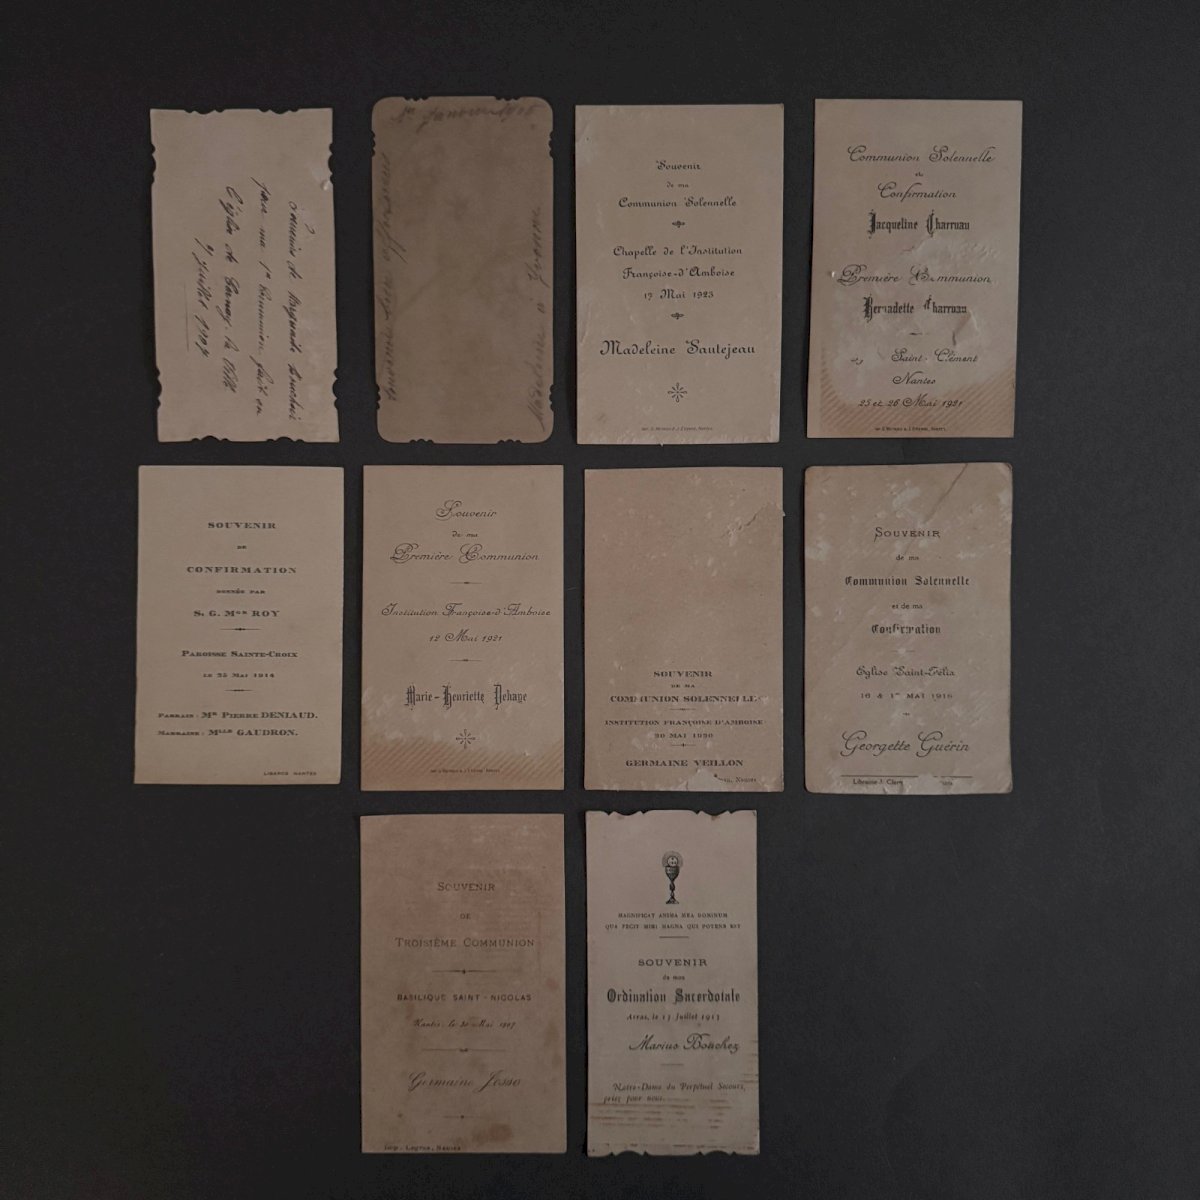 Souvenir de
pour ma 1re Communion fait en
l'église de
7 Juillet 1907
Janvier
Souvenir
Madeleine à Yvonne
Souvenir
de ma
Communion Solennelle
Chapelle de l'Institution
Françoise-d'Amboise
17 Mai 1923
Madeleine Sautejeau
Communion Solennelle
et
Confirmation
Jacqueline Charruau
Première Communion
Bernadette Charruau
Saint-Clément
Nantes
25 et 26 Mai 1921
SOUVENIR
DE
CONFIRMATION
DONNÉE PAR
S. G. MGR ROY
PAROISSE SAINTE-CROIX
LE 25 MAI 1914
PARRAIN : MR PIERRE DENIAUD.
MARRAINE : MLLE GAUDRON.
LIBAROS NANTES
Souvenir
de ma
Première Communion
Institution Françoise-d'Amboise
12 Mai 1921
Marie-Henriette Dehaye
SOUVENIR
DE MA
COMMUNION SOLENNELLE
INSTITUTION FRANÇOISE D'AMBOISE
20 MAI 1930
GERMAINE VEILLON
Nantes
SOUVENIR
de ma
Communion Solennelle
et de ma
Confirmation
Eglise Saint-Félix
16 & 1er MAI 1918
Georgette Guérin
Librairie J. Clerg
SOUVENIR
DE
TROISIÈME COMMUNION
BASILIQUE SAINT-NICOLAS
Nantes, le 30 Mai 1907
Germaine Josso
Imp. Legros, Nantes
MAGNIFICAT ANIMA MEA DOMINUM
QUA FECIT MIHI MAGNA QUI POTENS EST
SOUVENIR
de mon
Ordination Sacerdotale
Arras, le 13 Juillet 1913
Marius Bouchez
Notre-Dame du Perpétuel Secours,
priez pour nous.